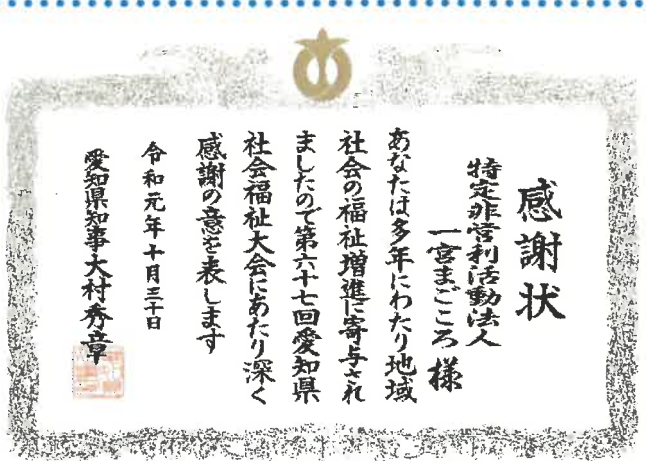 感謝状
特定非営利活動法人
一宮まごころ 様
あなたは多年にわたり地域
社会の福祉増進に寄与され
ましたので第六十七回愛知県
社会福祉大会にあたり深く
感謝の意を表します
令和元年十月三十日
愛知県知事大村秀章